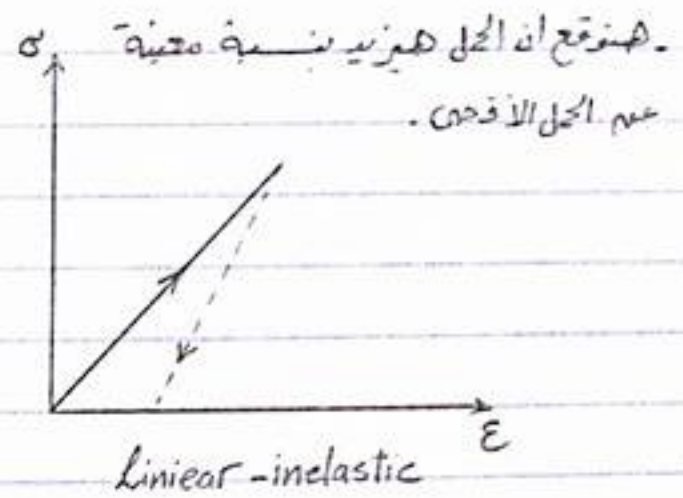 هنتوقع ان الحمل هيزيد بنسبة معينة.
عن الحمل الأقصى.
σ
ε
Liniear-inelastic